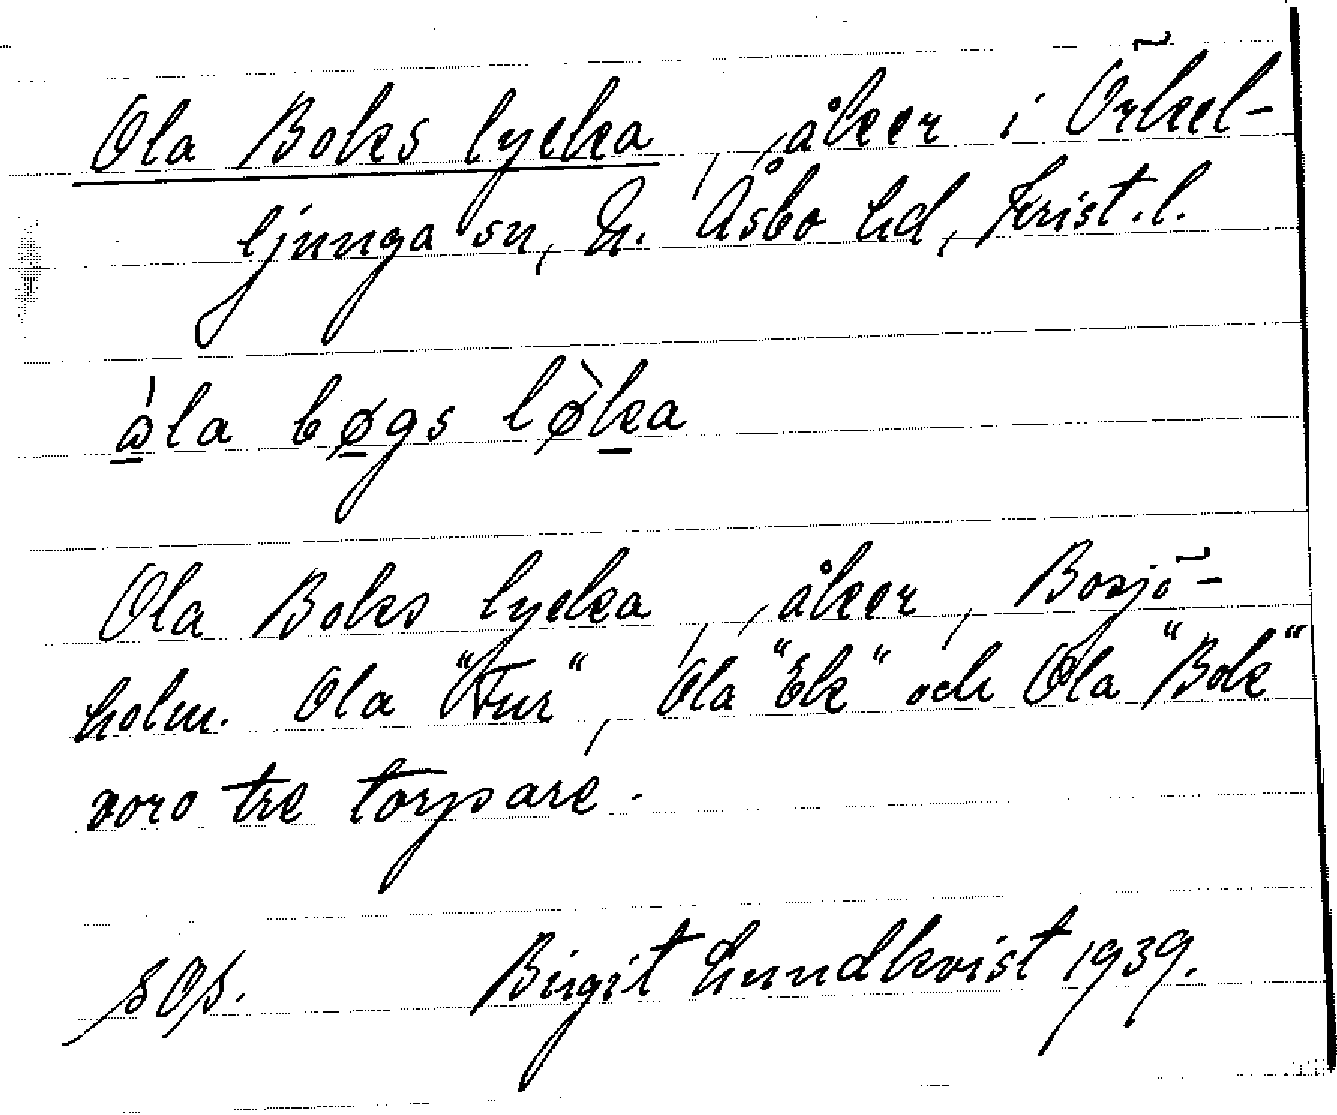 Ola Boks lycka, åker i Örkel-
ljunga sn, N. Åsbo hd, Krist. l.
åla bøgs løka
Ola Boks lycka, åker, Bosjö-
holm. Ola "Fur", Ola "Ek" och Ola "Bok"
voro tre torpare.
SOS. Birgit Lundkvist 1939.